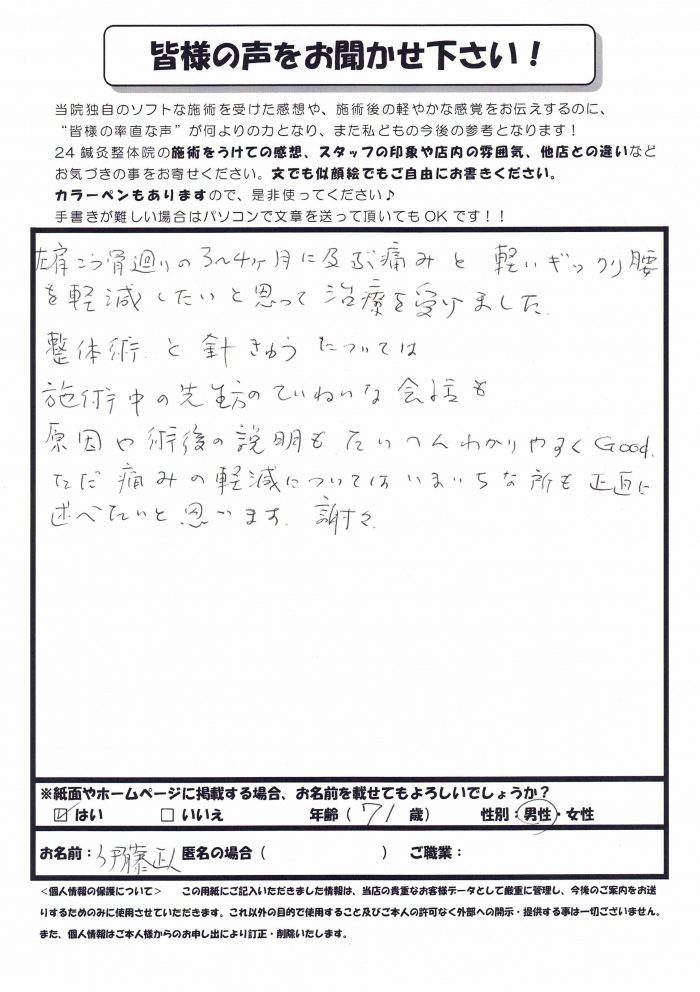 皆様の声をお聞かせ下さい！
当院独自のソフトな施術を受けた感想や、施術後の軽やかな感覚をお伝えするのに、
“皆様の率直な声”が何よりの力となり、また私どもの今後の参考となります！
24鍼灸整体院の施術をうけての感想、スタッフの印象や店内の雰囲気、他店との違いなど
お気づきの事をお寄せください。文でも似顔絵でもご自由にお書きください。
カラーペンもありますので、是非使ってください♪
手書きが難しい場合はパソコンで文章を送って頂いてもOKです！！
左肩こう骨廻りの3〜4ヶ月に及ぶ痛みと軽いギックリ腰
を軽減したいと思って治療を受けました.
整体術.と針きゅうについては
施術中の先生方のていねいな会話も
原因や術後の説明もたいへんわかりやすくGood.
ただ痛みの軽減についてはいまいちな所も正直に
述べたいと思います. 謝々.
※紙面やホームページに掲載する場合、お名前を載せてもよろしいでしょうか？
☑はい □いいえ 年齢（71歳） 性別：男性・女性
お名前：伊藤正 匿名の場合（ ） ご職業：
＜個人情報の保護について＞ この用紙にご記入いただきました情報は、当店の貴重なお客様データとして厳重に管理し、今後のご案内をお送
りするためのみに使用させていただきます。これ以外の目的で使用すること及びご本人の許可なく外部への開示・提供する事は一切ございません。
また、個人情報はご本人様からのお申し出により訂正・削除いたします。